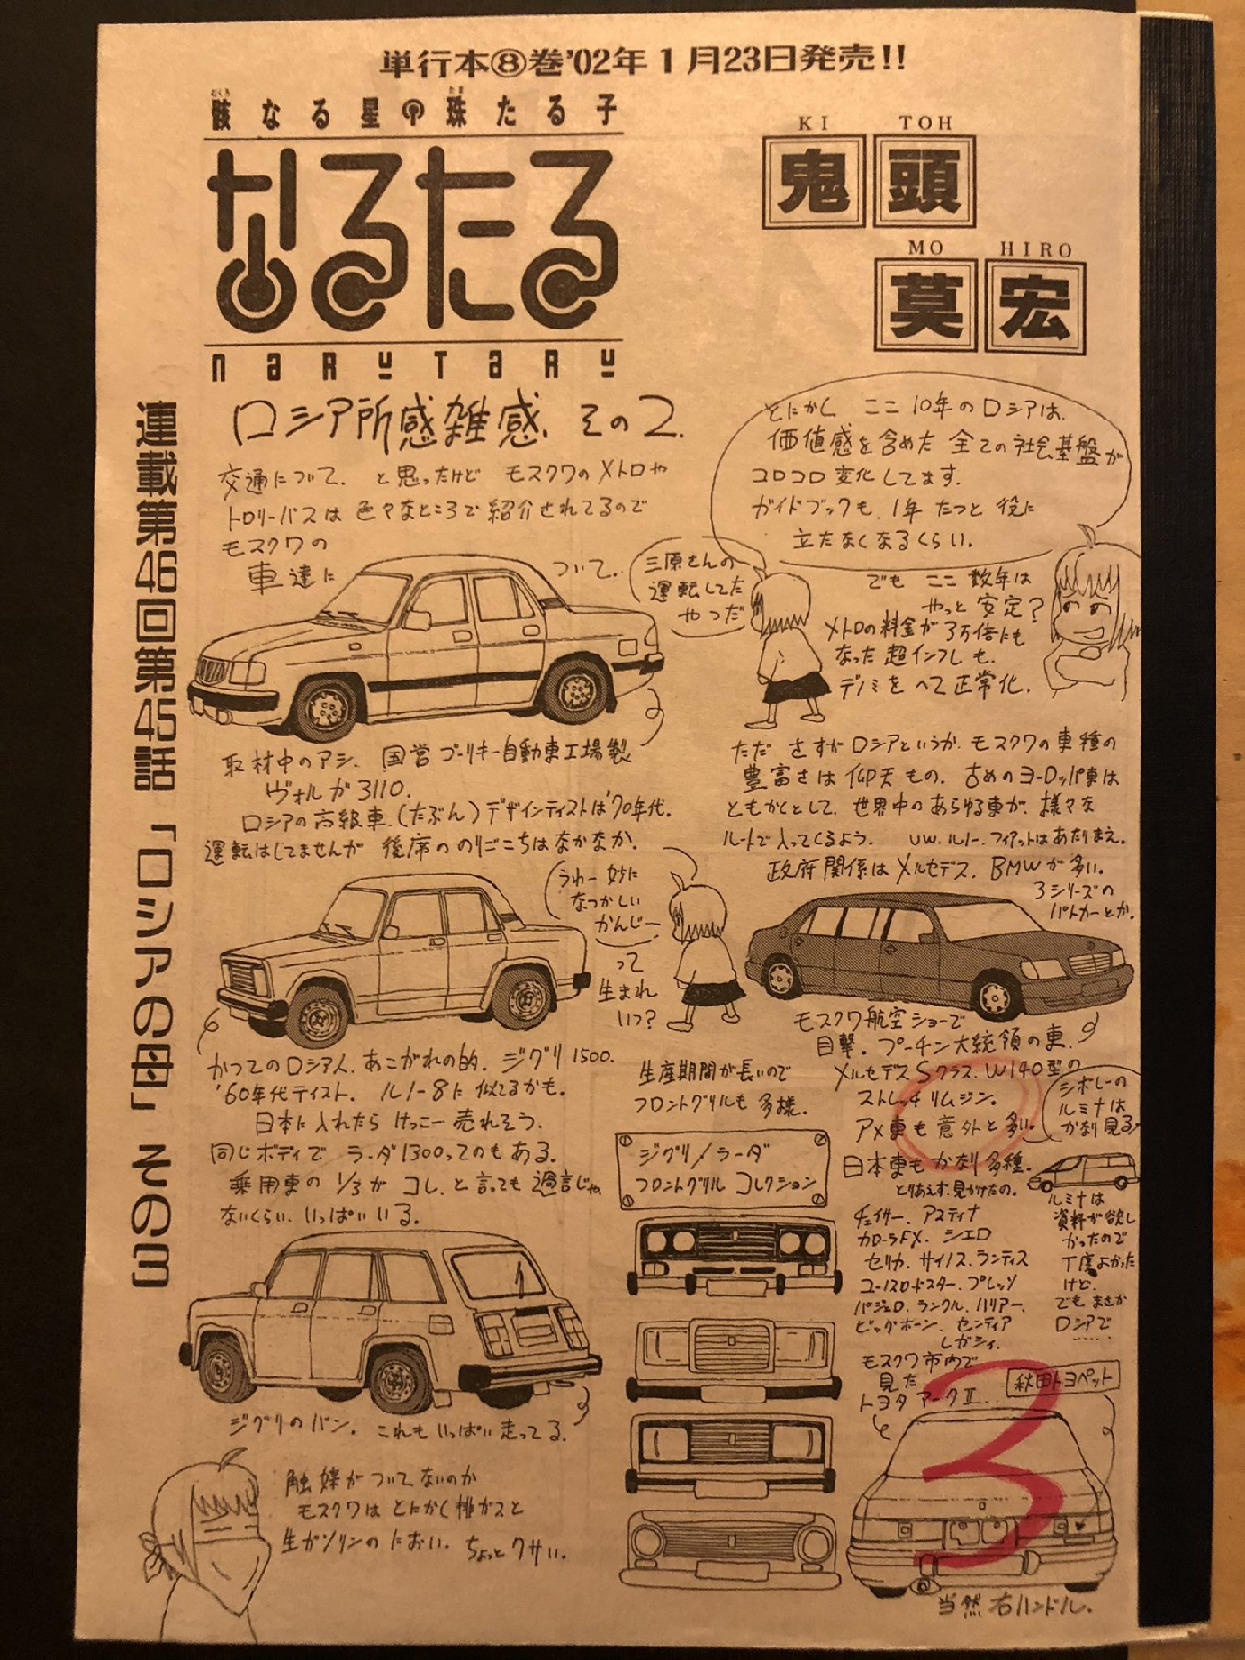 単行本⑧巻'02年1月23日発売!!
骸なる星の珠たる子
なるたる
NARUTARU
KI TOH
鬼頭
MO HIRO
莫宏
連載第46回第45話「ロシアの母」その3
ロシア所感雑感、その2.
交通について、と思ったけど モスクワのメトロや
トロリーバスは色々なところで紹介されてるので
モスクワの
車達に
ついて.
三原さんの
運転してた
やつだ
とにかく ここ10年のロシアは、
価値感を含めた全ての社会基盤が
コロコロ変化してます.
ガイドブックも、1年たつと役に
立たなくなるくらい.
でも ここ数年は
やっと安定?
メトロの料金が3万倍にも
なった超インフレも、
デノミをへて正常化.
取材中のアシ、国営ゴーリキー自動車工場製
ヴォルガ3110.
ロシアの高級車(たぶん)デザインテイストは'70年代.
運転はしてませんが 後席ののりごこちはなかなか.
ただ さすがロシアというか、モスクワの車種の
豊富さは仰天もの. 古めのヨーロッパ車は
ともかくとして、世界中のあらゆる車が、様々な
ルートで入ってくるよう. VW.ルノー.フィアットはあたりまえ.
政府関係はメルセデス、BMWが多い.
3シリーズの
パトカーとか.
うわー妙に
なつかしい
かんじー
って
生まれ
いつ?
かつてのロシア人、あこがれの的、ジグリ1500.
'60年代テイスト. ルノー8に似てるかも.
日本に入れたら けっこー売れそう.
同じボディで ラーダ1300ってのもある.
乗用車の1/3がコレ、と言っても過言じゃ
ないくらい、いっぱいいる.
生産期間が長いので
フロントグリルも多様.
モスクワ航空ショーで
目撃. プーチン大統領の車.
メルセデスSクラス、W140型の
ストレッチリムジン.
アメ車も意外と多い.
シボレーの
ルミナは
かなり見る.
ジグリ/ラーダ
フロントグリル コレクション
日本車もかなり多種.
とりあえず.見かけたの.
チェイサー、アスティナ
カローラFX、シエロ
セリカ、サイノス、ランティス
ユーノスロードスター、プレッソ
パジェロ、ランクル、ハリアー、
ビッグホーン、センティア
レガシィ.
ルミナは
資料が欲し
かったので
丁度よかった
けど.
でも まさか
ロシアで
……
モスクワ市内で
見た
秋田トヨペット
ジグリのバン. これもいっぱい走ってる.
触媒がついてないのか
モスクワは とにかく排ガスと
生ガソリンの におい. ちょっとクサい.
当然 右ハンドル.
3